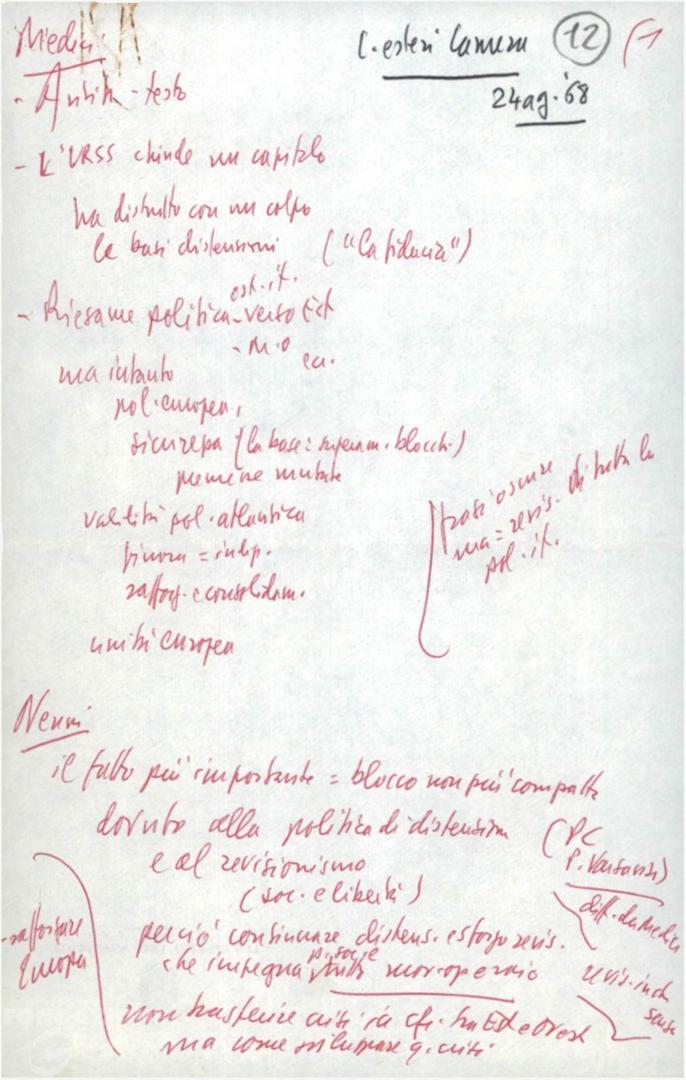 Medici
C. esteri Camera 12
24 ag. '68
- testo
- L'URSS chiude un capitolo
ha distrutto con un colpo
le basi distensioni ("la fiducia")
est. it.
- Riesame politica - verso Est
- M.O
ma intanto
pol. europea,
sicurezza (la base: superam. blocchi)
validità pol. atlantica
finora = indip.
rafforz. e consolidam.
unità europea
frasi oscure
ma = revis. di tutta la
pol. it.
Nenni
il fatto più importante = blocco non più compatto
dovuto alla politica di distensione (PC
e al revisionismo P. Varsavia)
(soc. e libertà)
diff. da Medici
- rafforzare
Europa
perciò continuare distens. e sforzo revis.
che impegna tutto mov. operaio
revis. in ch
non trasferire crisi in cfr. tra Est e Ovest
ma come sviluppare q. crisi